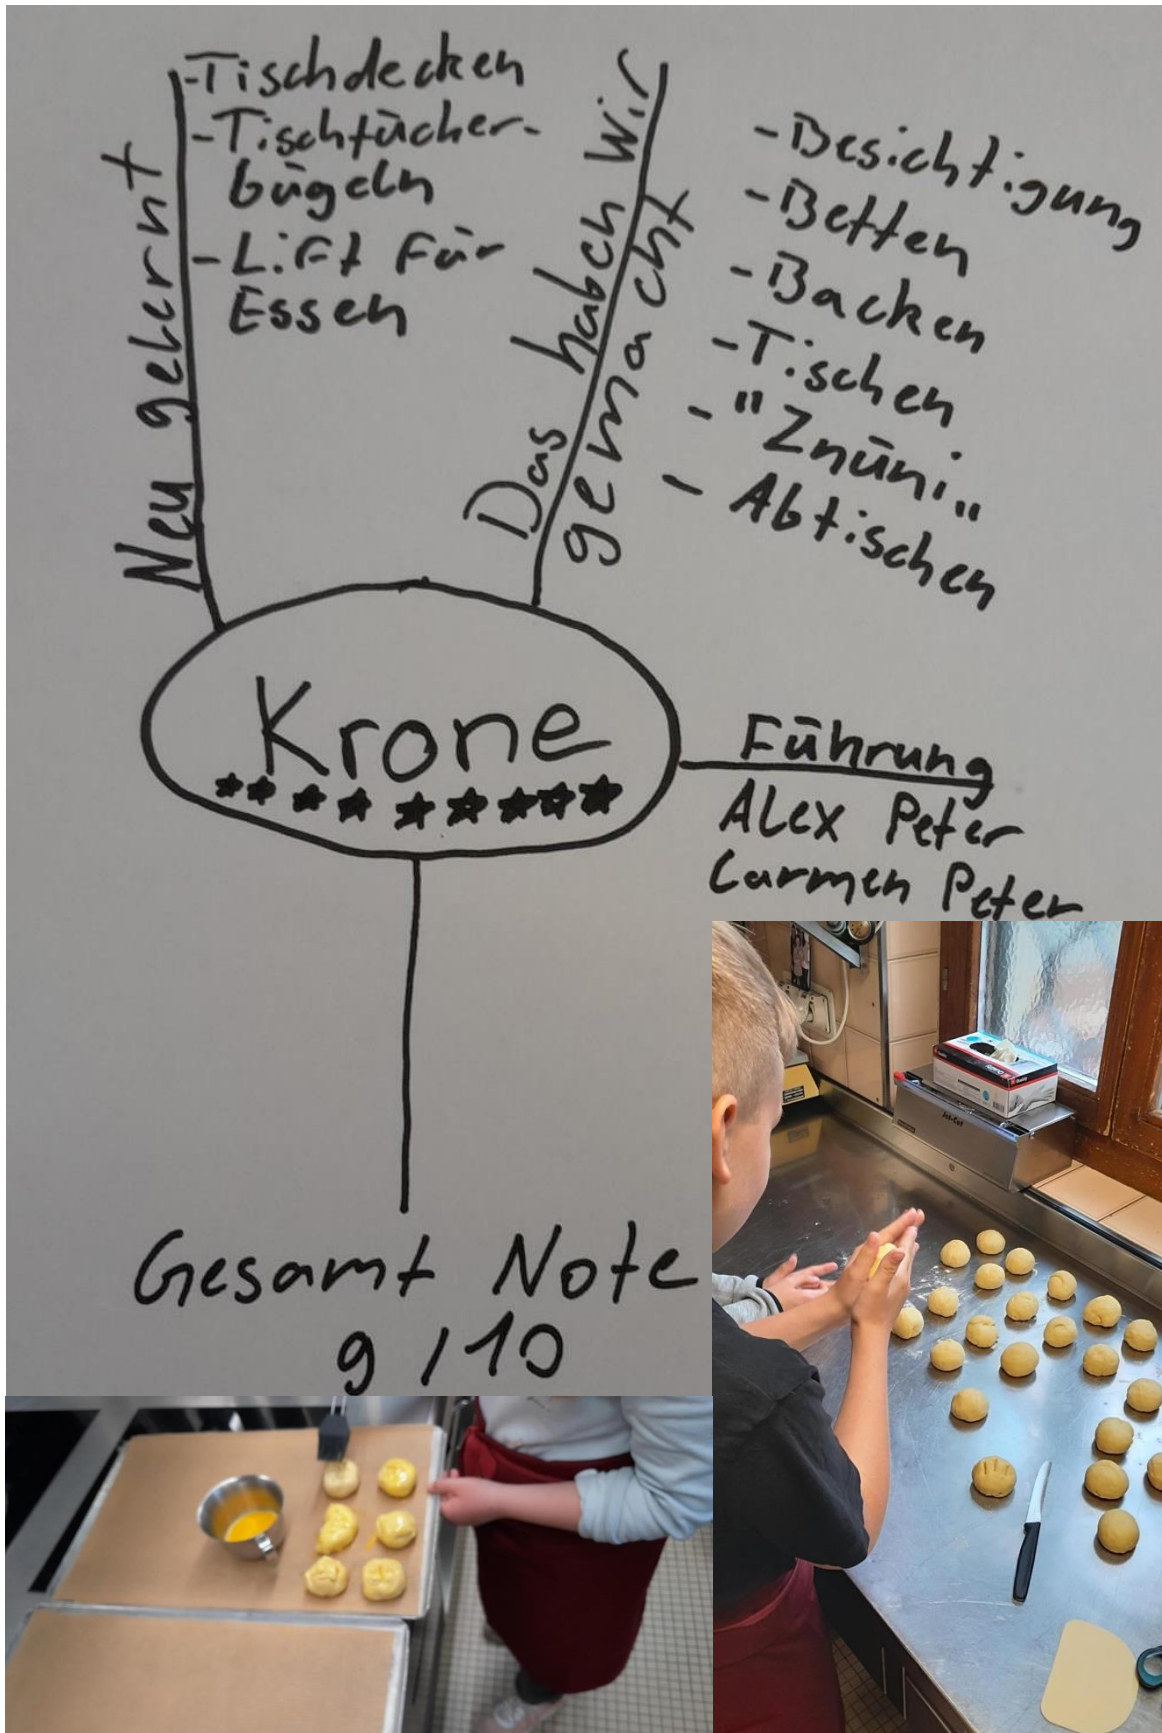 Neu gelernt
-Tischdecken
-Tischtücher-
bügeln
-Lift für
Essen
Das haben wir
gemacht
-Besichtigung
-Betten
-Backen
-Tischen
-"Znüni"
-Abtischen
Krone
Führung
Alex Peter
Carmen Peter
Gesamt Note
9/10
Jet-Cut